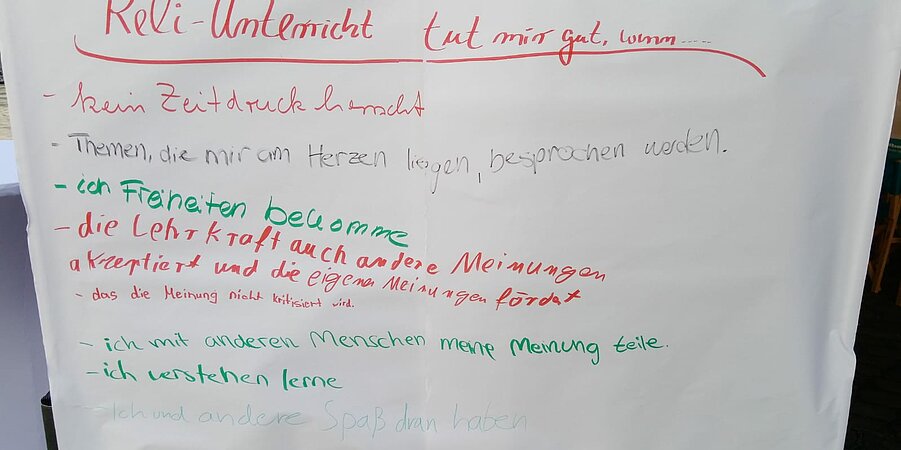 Reli-Unterricht tut mir gut, wenn.....
- kein Zeitdruck herrscht
- Themen, die mir am Herzen liegen, besprochen werden.
- ich Freiheiten bekomme
- die Lehrkraft auch andere Meinungen
akzeptiert und die eigenen Meinungen fördert
- das die Meinung nicht kritisiert wird.
- ich mit anderen Menschen meine Meinung teile.
- ich verstehen lerne
- Ich und andere Spaß dran haben